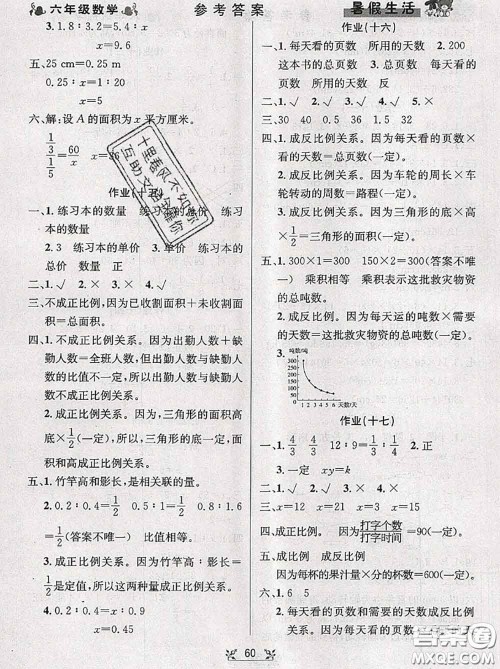 六年级数学
参考答案
暑假生活
3. 1.8∶3.2=5.4∶x
x=9.6
五、25 cm=0.25 m
0.25∶x=1∶20
x=5
六、解:设A的面积为x平方厘米。
1/3 / 1/5 = 60/x  x=36
十里春风不如你
互助文
作业(十五)
一、1. 练习本的数量 练习本的总价 练习
本的数量
2. 3 练习本的单价 3. 单价 练习本的
总价 数量 正
二、1. √
三、不成正比例。因为已收割面积+未收割面
积=总面积。
四、1. 不成正比例关系。因为出勤人数+缺
勤人数=全班人数,但出勤人数与缺勤
人数的比值不一定,所以出勤人数与缺
勤人数不成正比例关系。
2. 成正比例关系。因为三角形的面积
高/底=1/2(一定),所以三角形的底一定,面
积和高成正比例关系。
五、1. 竹竿高和影长,是相关联的量。
2. 0.2∶0.4=1/2 0.5∶1=1/2 0.8∶1.6
=1/2(答案不唯一) 比值相等。
3. 成正比例关系。因为竹竿高∶影长=
1/2是定值,所以这两种量成正比例关系。
4. 0.2∶0.4=x∶0.9
x=0.45
作业(十六)
一、1. 每天看的页数 所用的天数 2. 200
这本书的总页数 3. 总页数 每天看的
页数 所用的天数 反
二、1. √ 2. √ 3. √ 4. √ 5. ×
三、30 40 0.5 36 1.5 30
四、1. 成反比例关系。因为每天看的页数×
看的天数=总页数(一定)。
2. 成反比例关系。因为车轮的周长×车
轮转动的周数=路程(一定)。
3. 成正比例关系。因为三角形的面积÷
高=1/2×底(一定)。
五、1. 300×1=300 150×2=300(答案不唯
一) 乘积相等 乘积表示这批救灾物资
的总吨数。
2. 成反比例。因为每天运的吨数×需要
的天数=这批救灾物资的总吨数(一定)。
3. 吨数/吨
300
1 2 3 4 5 6 天数/天
作业(十七)
一、1. 4/3 4/3 12∶9=1/3∶1/4 2. 正
3. 一定 xy=k
二、1. √ 2. × 3. × 4. √
三、x=12 x=21 x=15 x=3
四、成正比例。因为打字个数/打字时间=90(一定)。
五、成比例 成反比例
因为每杯的果汁量×分的杯数=600(一定)。
六、1. 6 5
2. 每天看的页数和需要的天数成反比例
关系。因为每天看的页数×需要的天数
60
答案圈
MXQE.COM